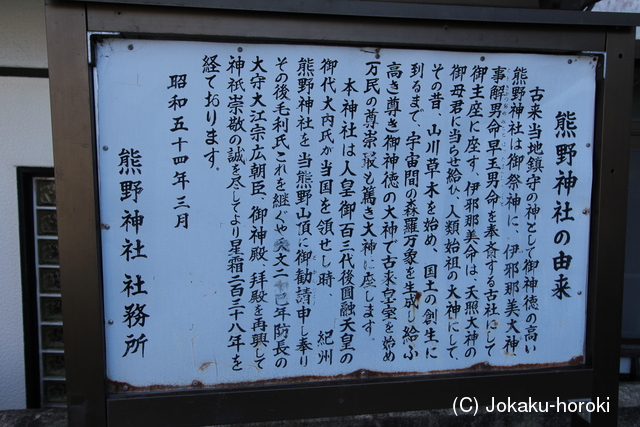 熊野神社の由来
古来当地鎮守の神として御神徳の高い
熊野神社は御祭神に、伊邪那美大神
事解男命早玉男命を奉斎する古社にして
御主座に座す、伊邪那美命は、天照大神の
御母君に当らせ給ひ、人類始祖の大神にして、
その昔、山川草木を始め、国土の創生に
到るまで、宇宙間の森羅万象を生成し給ふ
高き尊き御神徳の大神で古来皇室を始め
万民の尊崇最も篤き大神に座します。
本神社は人皇御百三代後圓融天皇の
御代大内氏が当国を領せし時、紀州
熊野神社を当熊野山頂に御勧請申し奉り
その後毛利氏これを継ぐや文二年防長の
大守大江宗広朝臣、御神殿、拝殿を再興して
神祇崇敬の誠を尽してより星霜二百二十八年を
経ております。
昭和五十四年三月
熊野神社 社務所
(C) Jokaku-horoki